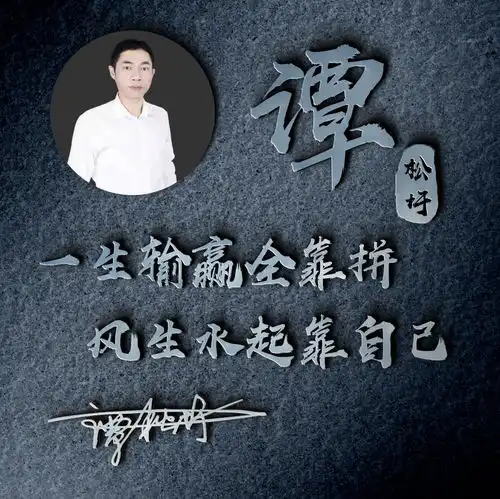 谭
松圩
一生输赢全靠拼
风生水起靠自己
谭松圩